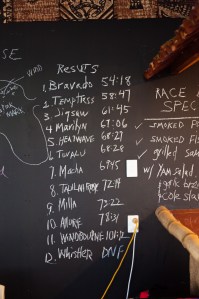 SE
WIND
Results
1. Bravado 54:18
2. Temptress 58:47
3. Jigsaw 61:45
4. Marilyn 67:06
5. HEATWAVE 68:27
6. Tuvalu 68:28
7. Macha 69:45
8.
9. Milla 73:22
10. Allure 78:31
11. WINDBOURNE
12. Whistler DNF
RACE
SPEC
✓ SMOKED FIS
✓ SMOKED FIS
✓ grilled Sau
w/ YAM Salad
garlic bread
cole slaw